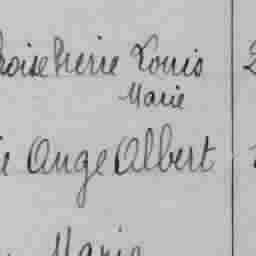 Pierre Louis
Marie
Ange Albert
Marie